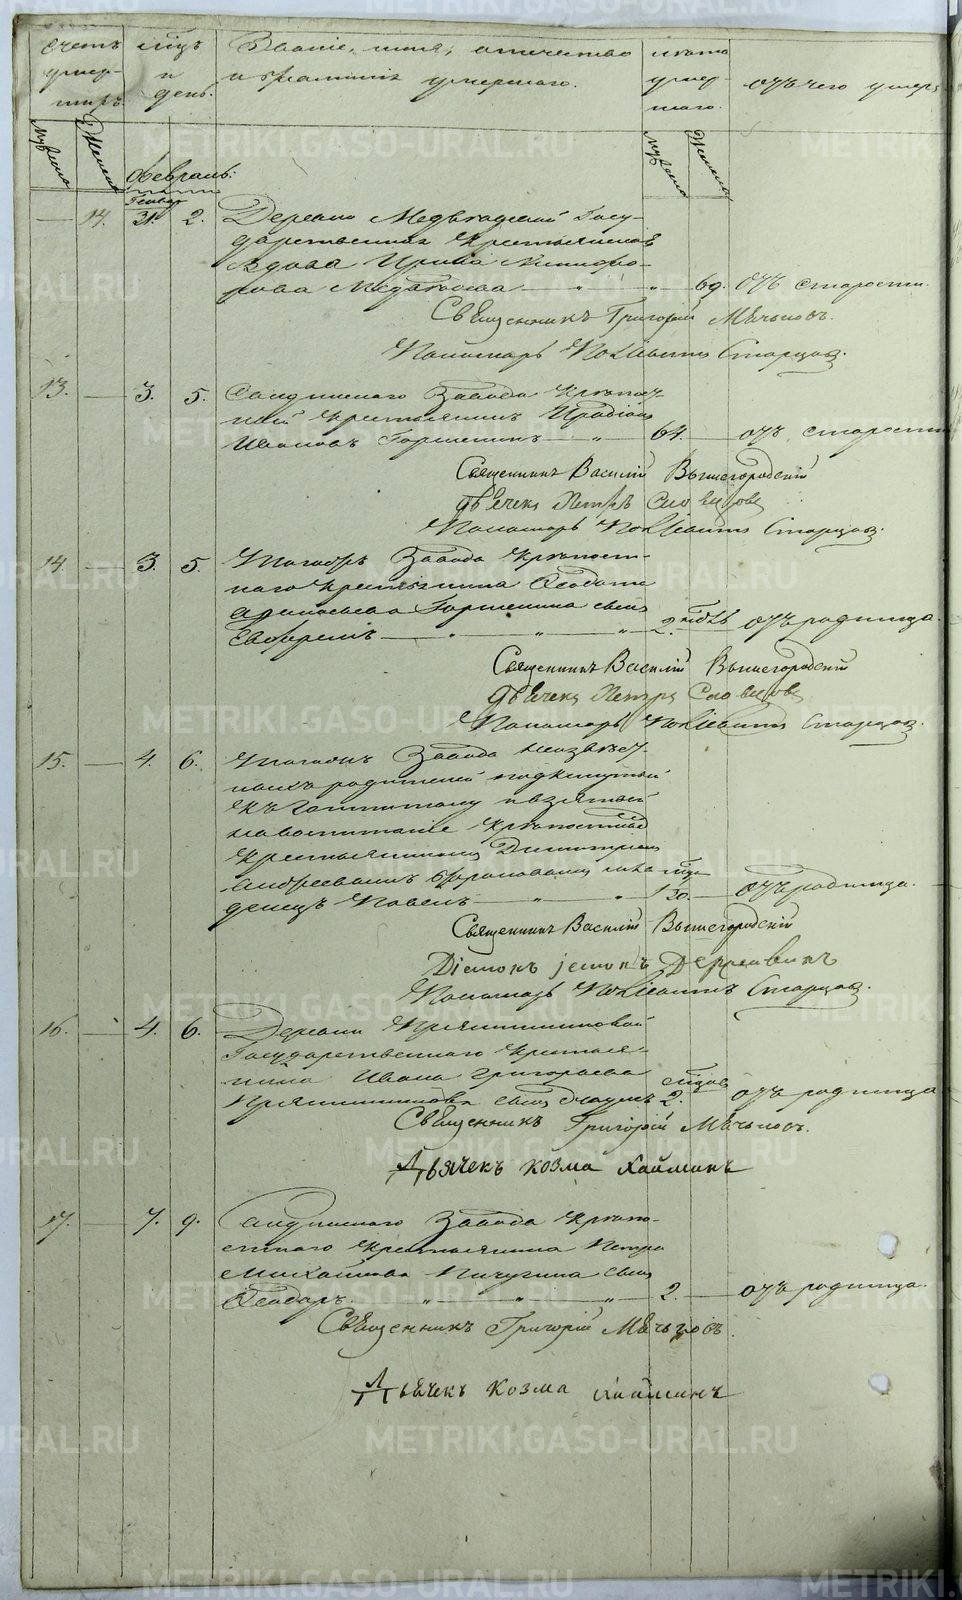 счетъ умер- шихъ.
мѣсц. и день.
Званіе, имя, отечество
и фамилія умершаго.
лѣта умер- шаго.
отъ чего умеръ
Мужеска
Женска
Мужеска
Женска
Февраль:
Генвар
— 14. 31. 2. Деревни Медвѣдевской Госу-
дарственная крестьянская
вдова Ирина Никифо-
рова Медвѣдева — „ — „ — 69. отъ старости.
Священникъ Григорій Мячьковъ.
Пономарь Поліевктъ Старцов.
13. — 3. 5. Саидинскаго Завода крѣпост-
ной крестьянинъ Иродіонъ
Ивановъ Горшенинъ — „ — 64. — отъ старости
Священникъ Василій Вышегородскій
дьячекъ Петръ Словцовъ
Пономарь Поліевктъ Старцов.
14. — 3. 5. Тогожъ Завода крѣпост-
наго крестьянина Ѳеодота
Горшенина сынъ
Евфремъ — „ — „ — „ — 2. нед. отъ родимца.
Священникъ Василій Вышегородскій
дьячекъ Петръ Словцовъ
Пономарь Поліевктъ Старцов.
15. — 4. 6. Тогожъ Завода неизвѣст-
ныхъ родителей подкинутый
къ и взятый
на воспитаніе крѣпостнымъ
крестьяниномъ Димитріемъ
Андреевымъ мла- мѣс.
денецъ Павелъ — „ — „ — — отъ родимца.
Священникъ Василій Вышегородскій
Діаконъ Державинъ
Пономарь Поліевктъ Старцов.
16. — 4. 6. Деревни
Государственнаго крестья-
нина Ивана Григорьева мѣсцов
сынъ 2. отъ родимца
Священникъ Григорій Мячьковъ.
Дьячекъ Козма Хайминъ
17. — 7. 9. Саидинскаго Завода крѣпо-
стнаго крестьянина Петра
Михайлова Пичугина сынъ
Ѳеодоръ. — „ — „ — „ — 2. — отъ родимца.
Священникъ Григорій Мячьковъ.
Дьячекъ Козма Хайминъ
METRIKI.GASO-URAL.RU